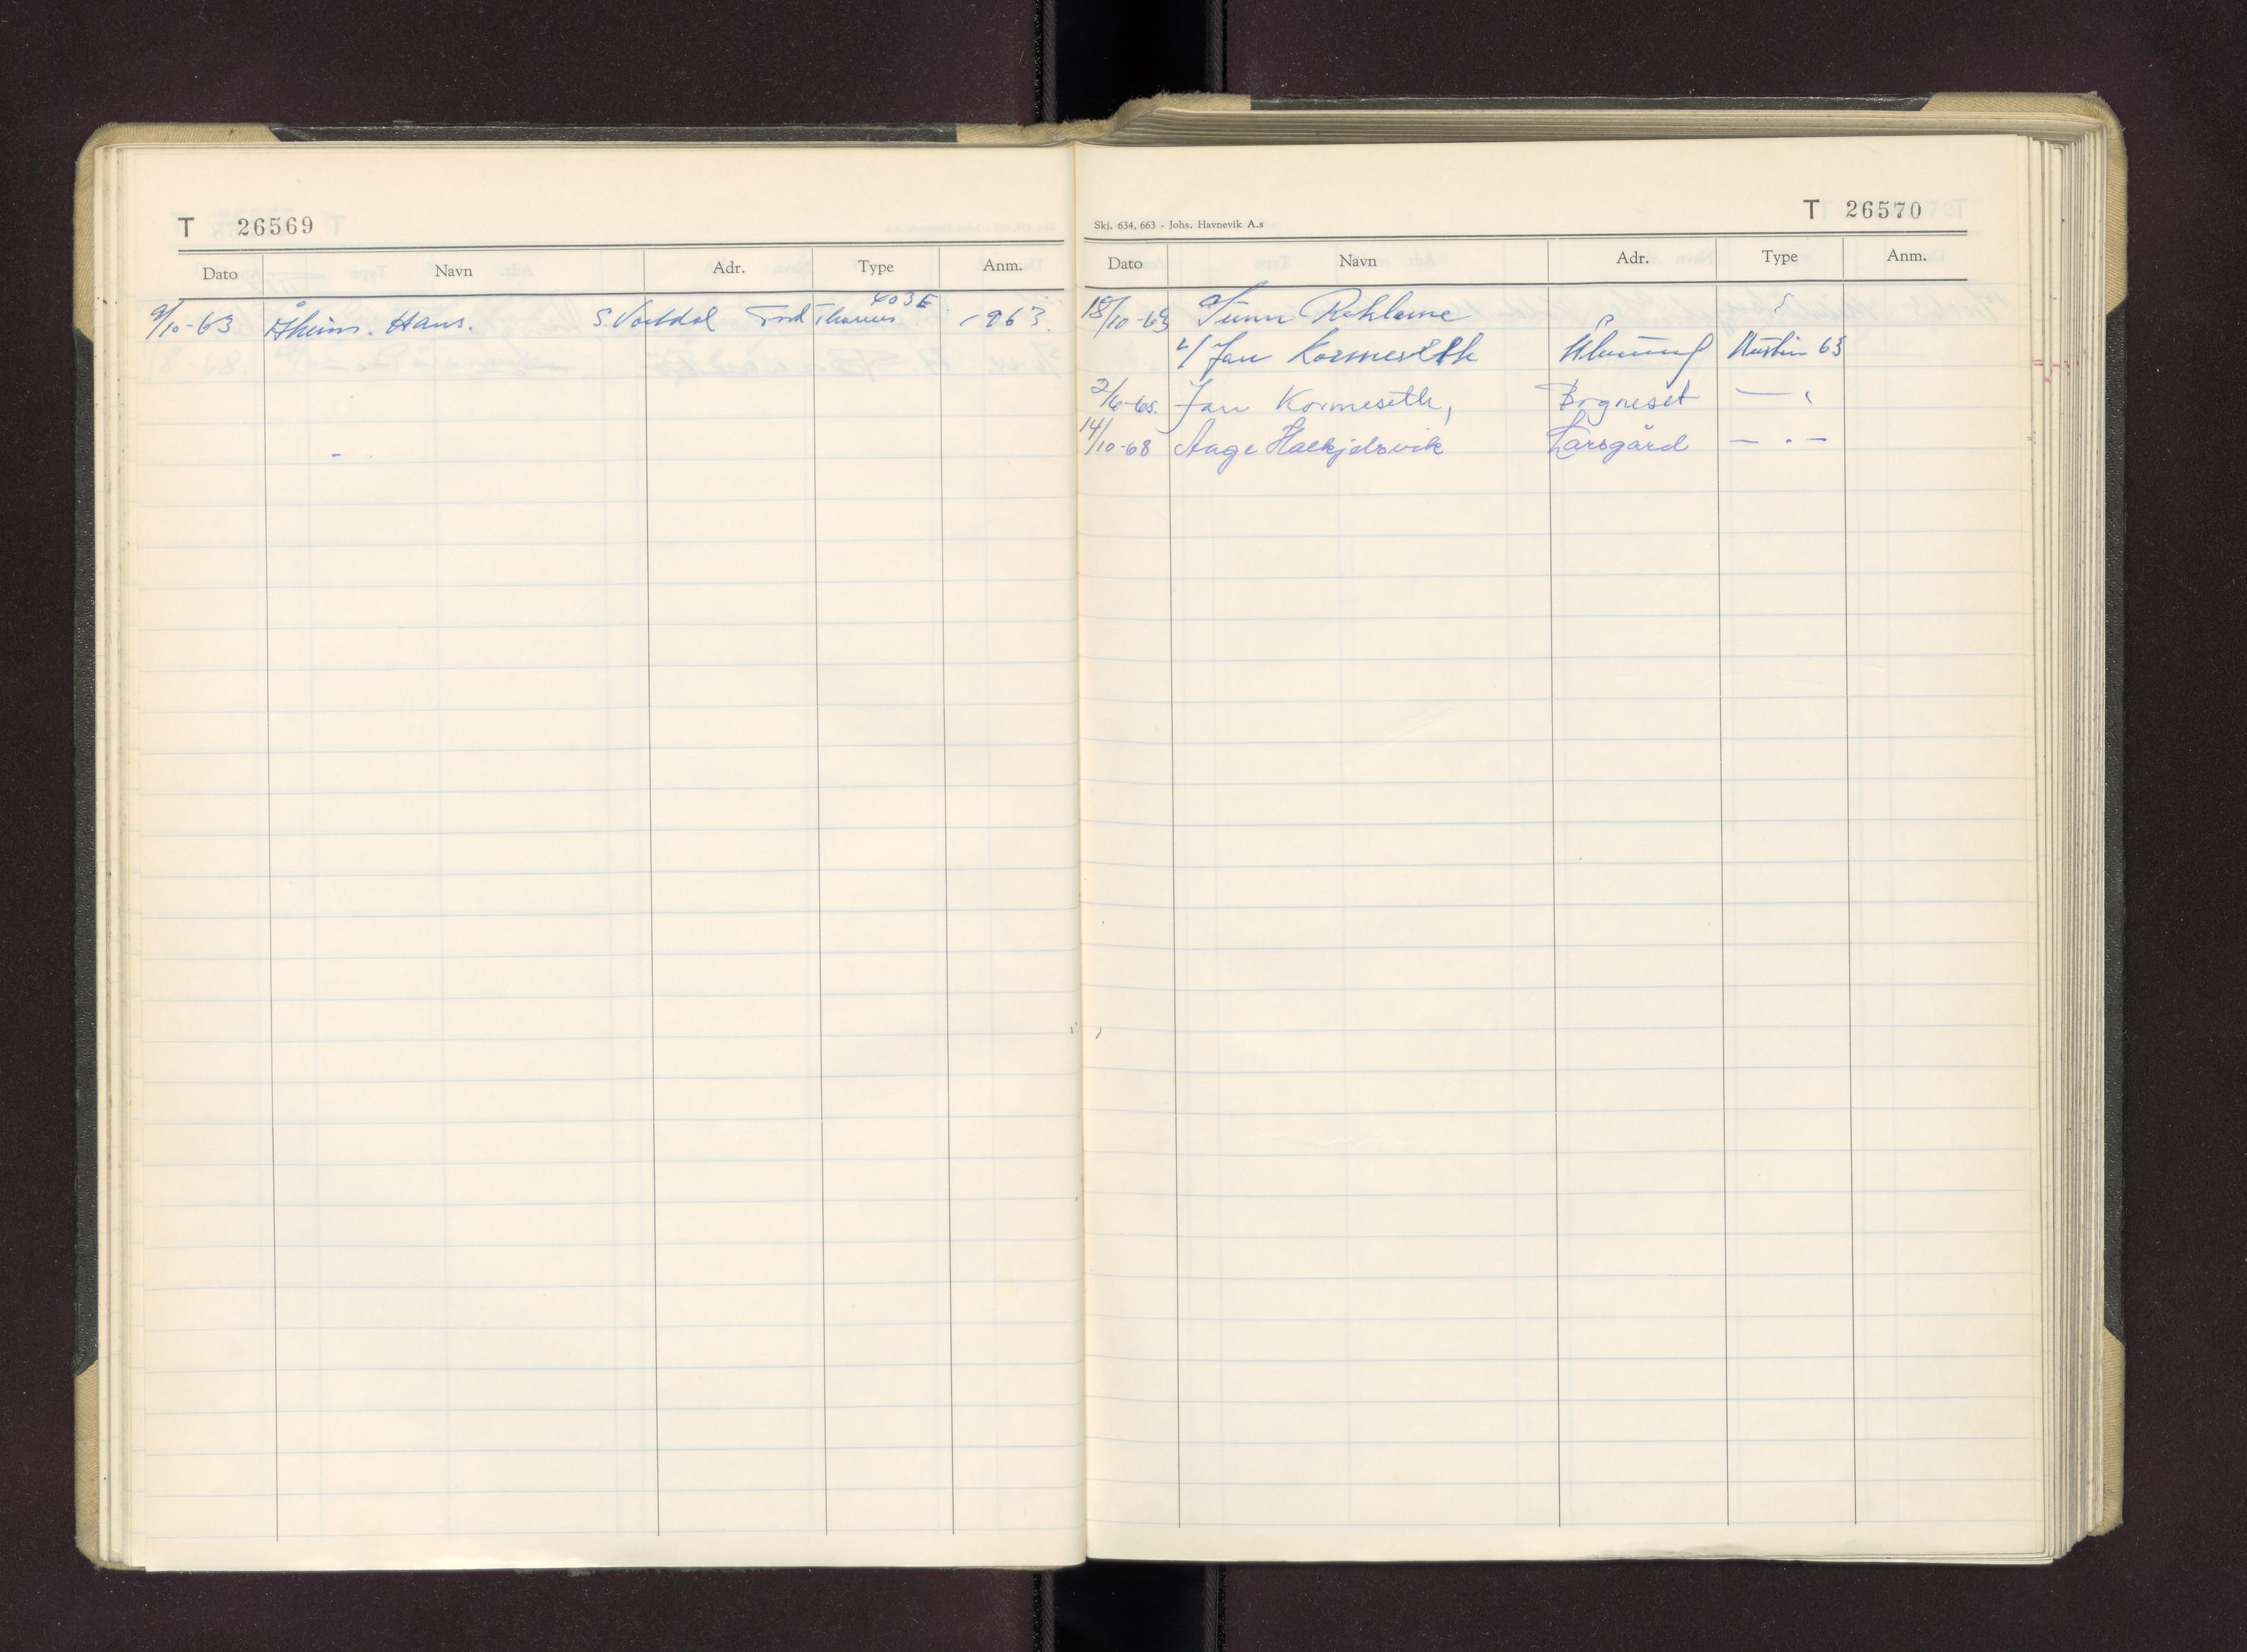 T 26569
Dato Navn Adr. Type Anm.
9/10-63 Åheim. Hans. S. Vartdal Ford Thames 403 E 1963.
T 26570
Skj. 634, 663 - Johs. Havnevik A.s
Dato Navn Adr. Type Anm.
18/10-63 Reklame
v/ Jan Kormeseth Austin 63
2/6-65. Jan Kormeseth, Bogneset — "
14/10-68 Aage Larsgård — " —